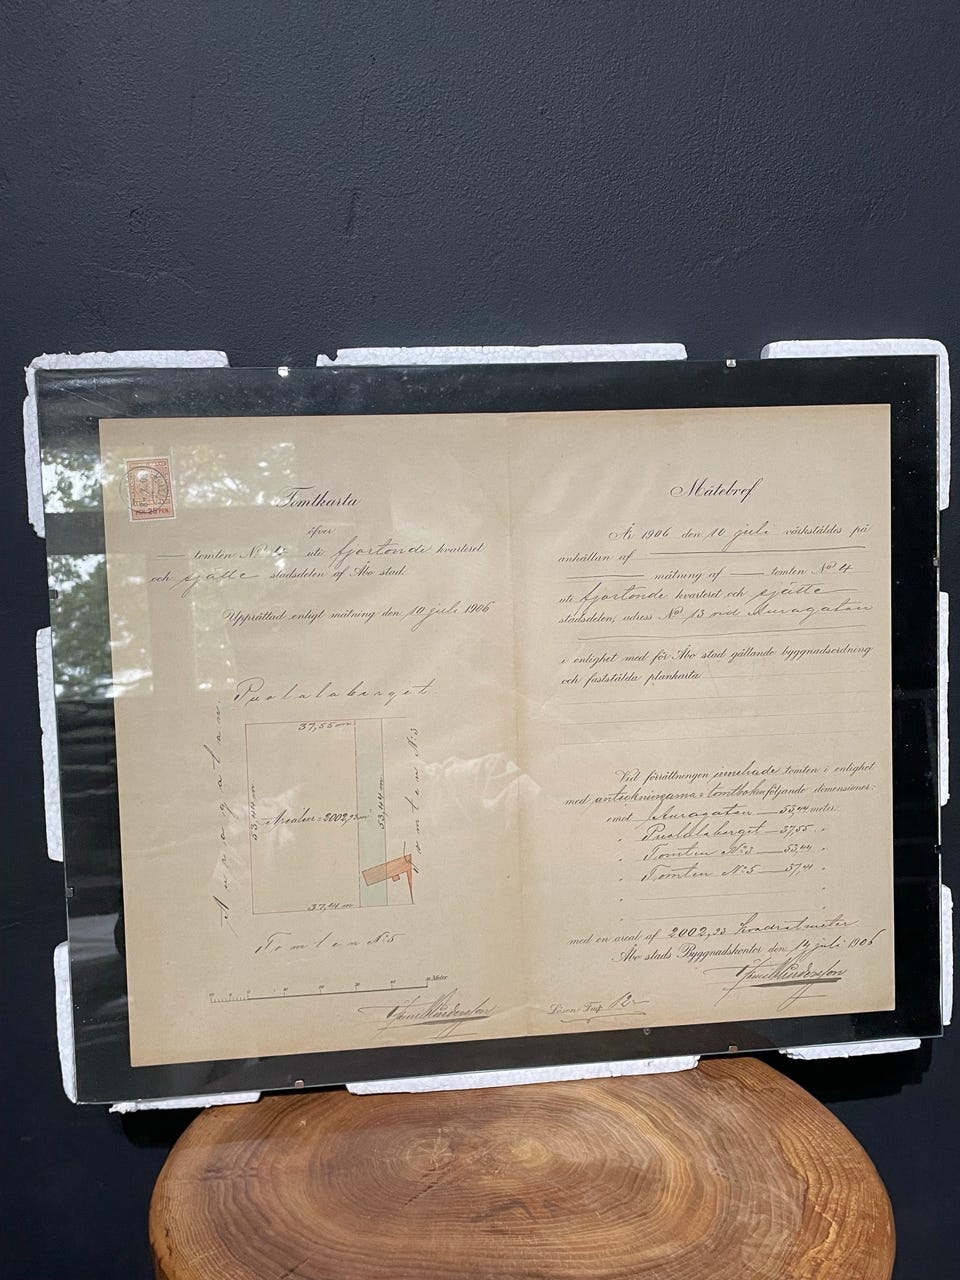 PEN. 25 PEN.
Tomtkarta
öfver
tomten No 4 uti fjortonde kvarteret
och sjätte stadsdelen af Åbo stad.
Upprättad enligt mätning den 10 juli 1906
Puolalaberget
Auragatan.
37,55 m
53,44 m
Arealen = 2002,93 m²
53,44 m
Tomten No 3
37,41 m
Tomten No 5
Meter
Mätebref
År 1906 den 10 juli värkstäldes på
anhållan af
mätning af tomten No 4
uti fjortonde kvarteret och sjätte
stadsdelen, adress No 13 vid Auragatan
i enlighet med för Åbo stad gällande byggnadsordning
och fastställda plankarta
Vid förrättningen innehade tomten i enlighet
med anteckningarna i tomtboken följande dimensioner:
emot Auragatan 53,44 meter.
" Puolalaberget 37,55 "
" Tomten No 3 53,44 "
" Tomten No 5 37,41 "
med en areal af 2002,93 Kvadratmeter
Åbo stads Byggnadskontor den 14 juli 1906
Lösen Fmk 12:-